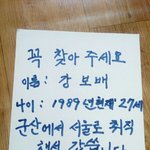 꼭 찾아 주세요
이름 : 강 보배
나이 : 1989년현재 27세
군산에서 서울로 취직
해서 갔습니다